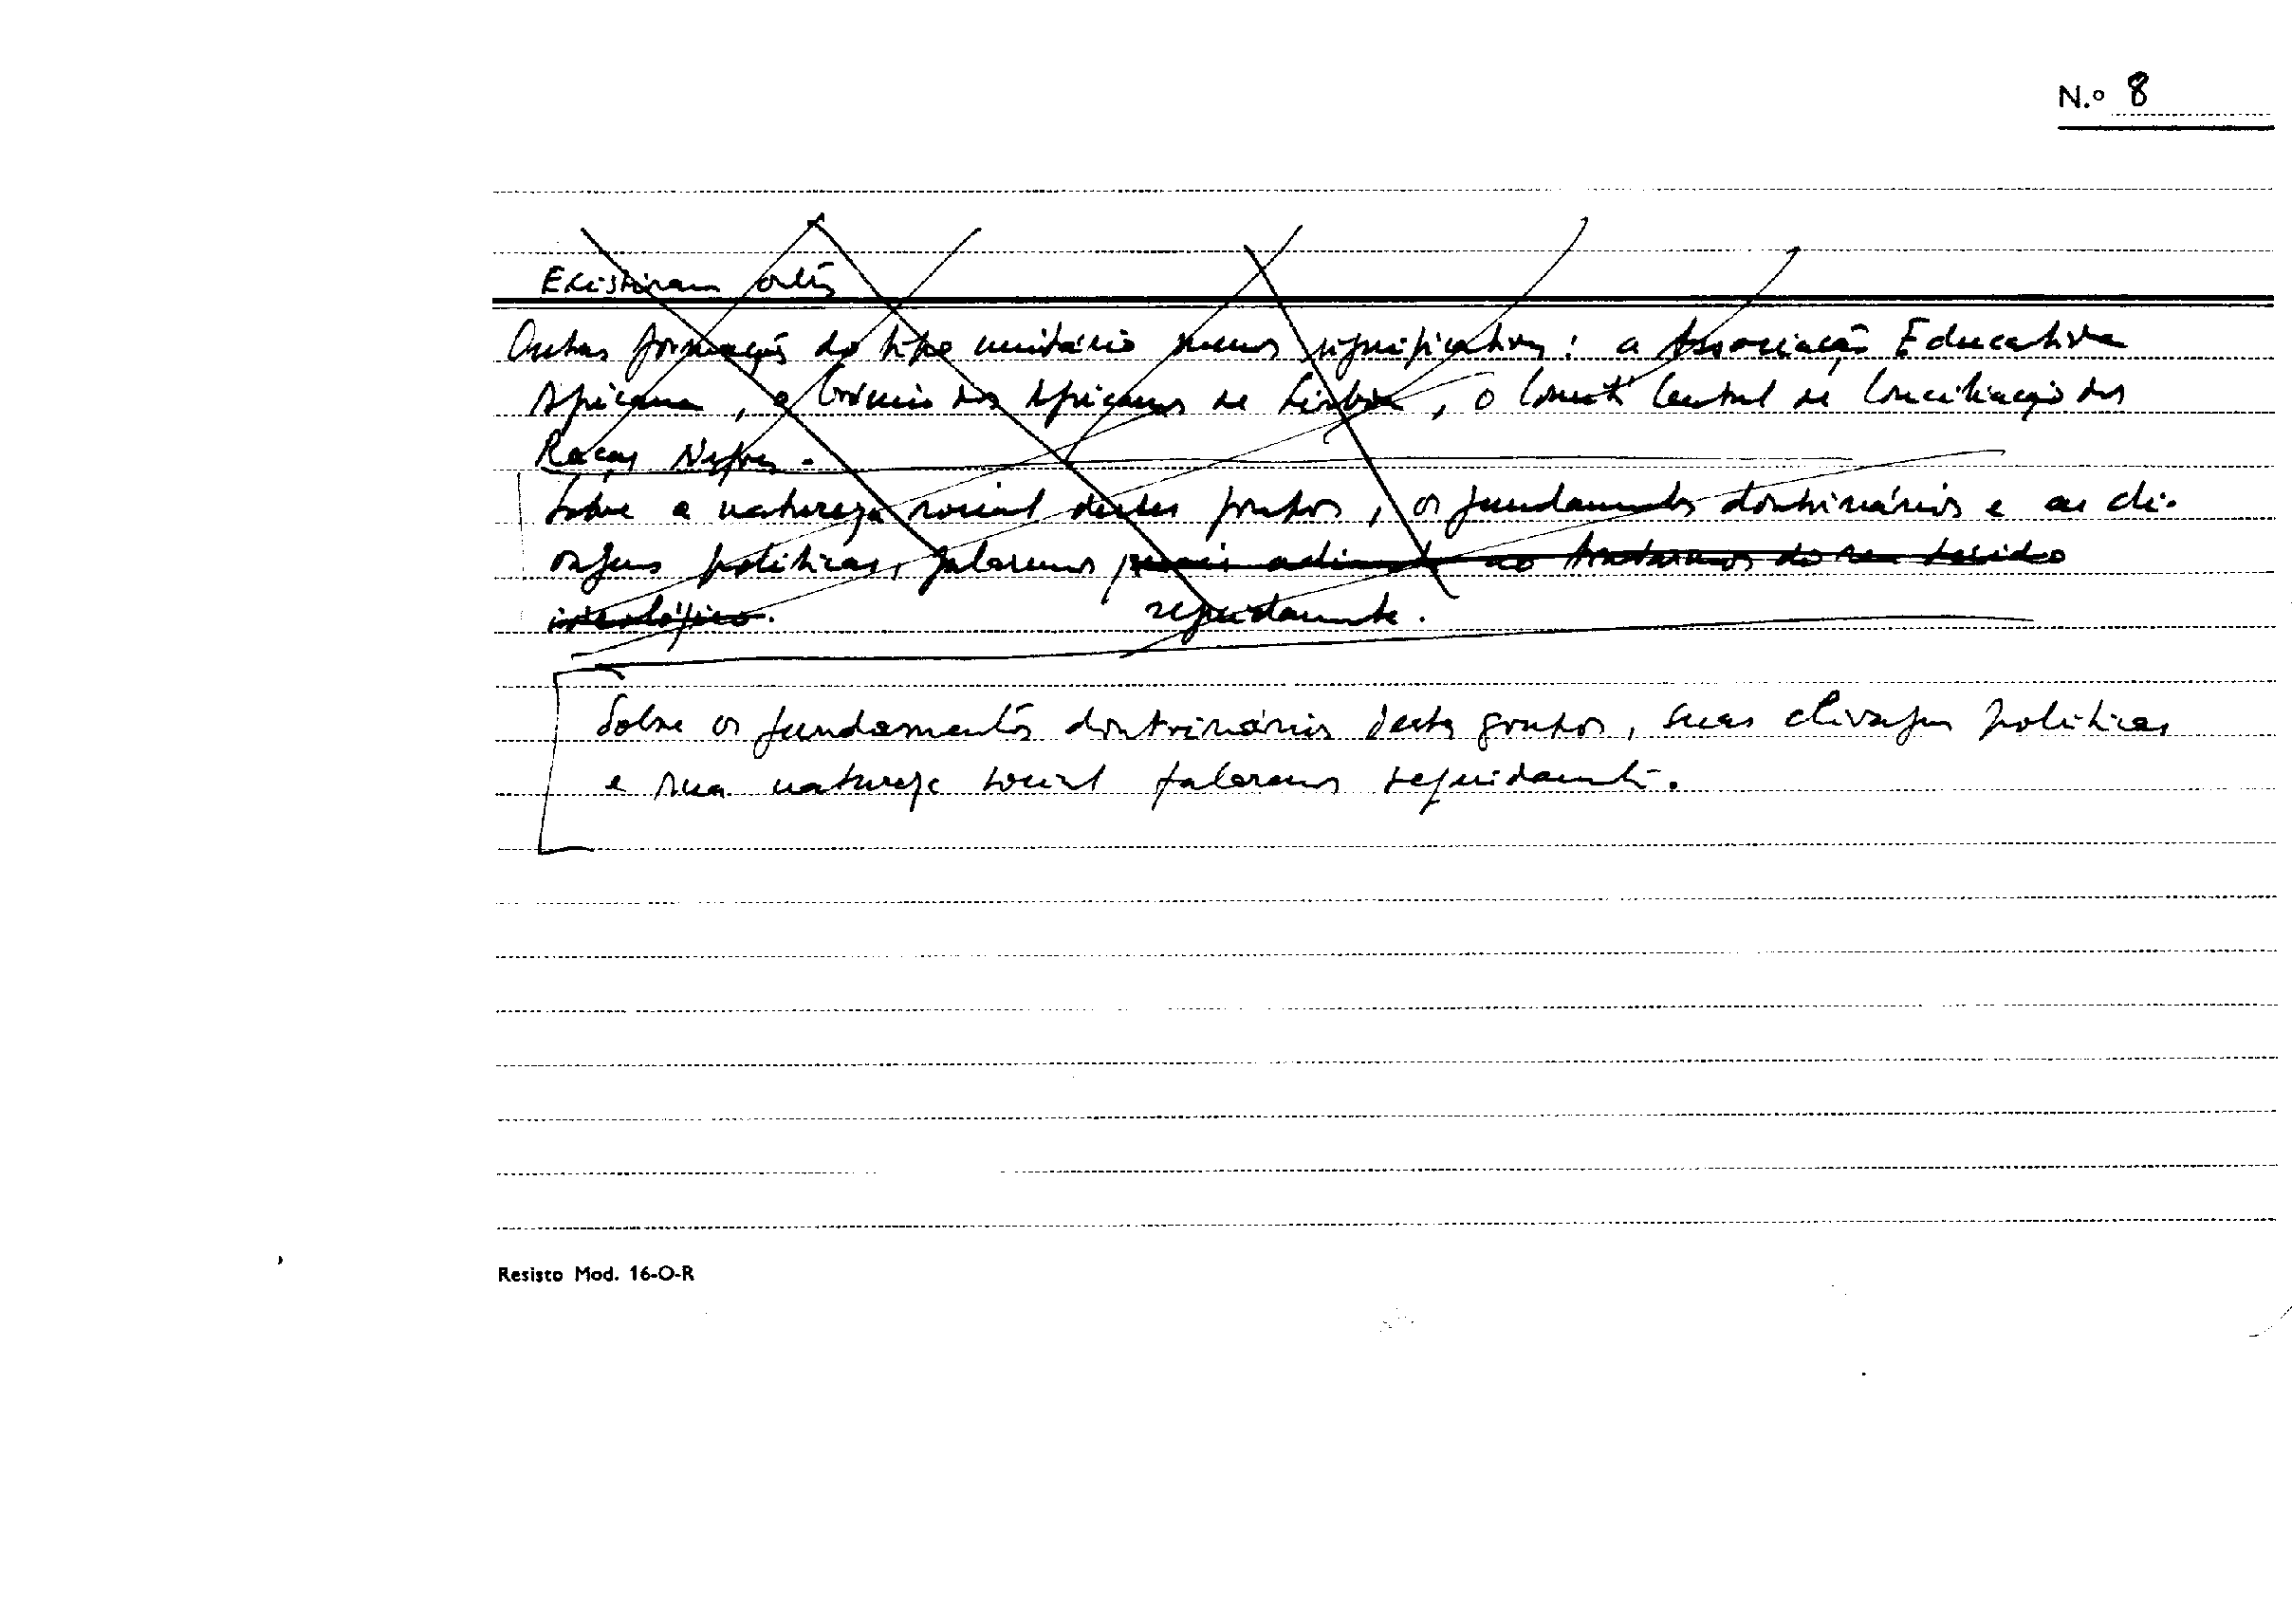 N.º 8
Existiram
Outras formações do tipo unitário menos significativas: a Associação Educativa
Africana, o Grémio dos Africanos de Lisboa, o Comité Central de Conciliação das
Raças Negras.
Sobre a natureza social destes grupos, os fundamentos doutrinários e as cli-
vagens políticas, falaremos mais adiante ao tratarmos do seu tecido
ideológico. seguidamente.
Sobre os fundamentos doutrinários destes grupos, suas clivagens políticas
e sua natureza social falaremos seguidamente.
Resisto Mod. 16-O-R